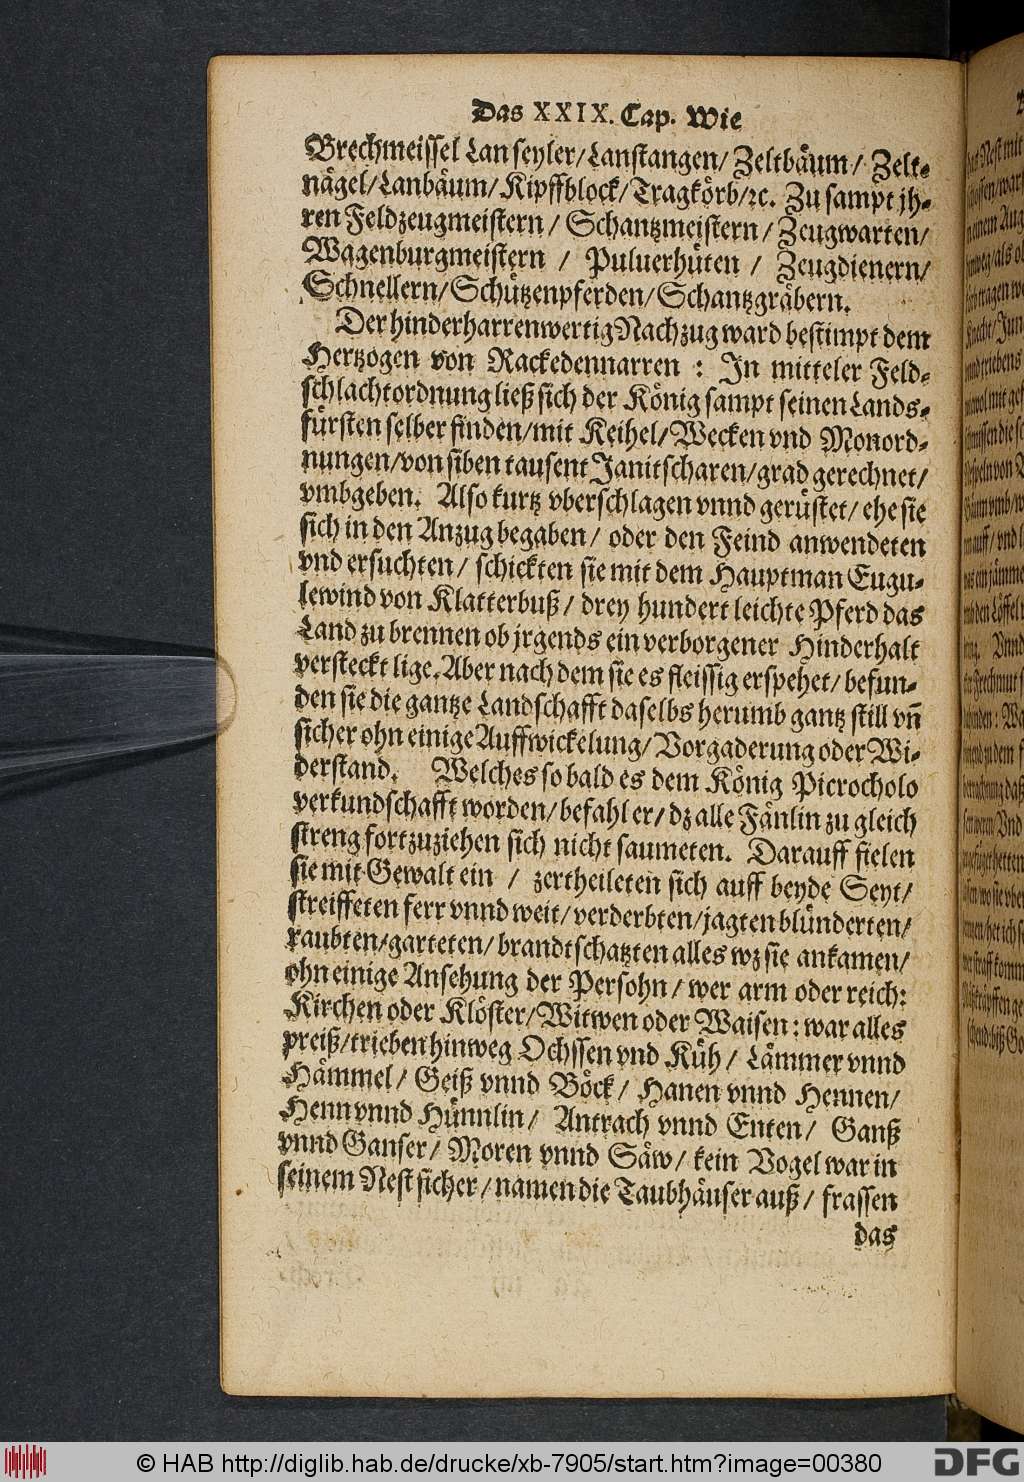 Das XXIX. Cap. Wie
Brechmeissel Lanseyler/Lanstangen/ Zeltbäum/ Zelt-
nägel/Lanbäum/Kipffblock/Tragkörb/ꝛc. Zu sampt jh-
ren Feldzeugmeistern/ Schantzmeistern/ Zeugwarten/
Wagenburgmeistern / Puluerhüten / Zeugdienern/
Schnellern/Schützenpferden/Schantzgräbern.
Der hinderharrenwertig Nachzug ward bestimpt dem
Hertzogen von Rackedennarren : In mitteler Feld-
schlachtordnung ließ sich der König sampt seinen Lands-
fürsten selber finden/mit Keihel/Wecken vnd Monord-
nungen/von siben tausent Janitscharen/grad gerechnet/
vmbgeben. Also kurtz vberschlagen vnnd gerüstet/ ehe sie
sich in den Anzug begaben/ oder den Feind anwendeten
vnd ersuchten/ schickten sie mit dem Hauptman Eugu-
lewind von Klatterbuß/ drey hundert leichte Pferd das
Land zu brennen ob jrgends ein verborgener Hinderhalt
versteckt lige. Aber nach dem sie es fleissig erspehet/ befun-
den sie die gantze Landschafft daselbs herumb gantz still vñ
sicher ohn einige Auffwickelung/ Vorgaderung oder Wi-
derstand. Welches so bald es dem König Picrocholo
verkundschafft worden/befahl er/ dz alle Fänlin zu gleich
streng fortzuziehen sich nicht saumeten. Darauff fielen
sie mit Gewalt ein / zertheileten sich auff beyde Seyt/
streiffeten ferr vnnd weit/ verderbten/jagten blünderten/
raubten/garteten/ brandtschatzten alles wz sie ankamen/
ohn einige Ansehung der Persohn/ wer arm oder reich:
Kirchen oder Klöster/Witwen oder Waisen: war alles
preiß/trieben hinweg Ochssen vnd Küh/ Lämmer vnnd
Hämmel/ Geiß vnnd Böck/ Hanen vnnd Hennen/
Henn vnnd Hünnlin/ Antrach vnnd Enten/ Ganß
vnnd Ganser/ Moren vnnd Säw/ kein Vogel war in
seinem Nest sicher/ namen die Taubhäuser auß/ frassen
das
© HAB http://diglib.hab.de/drucke/xb-7905/start.htm?image=00380
DFG